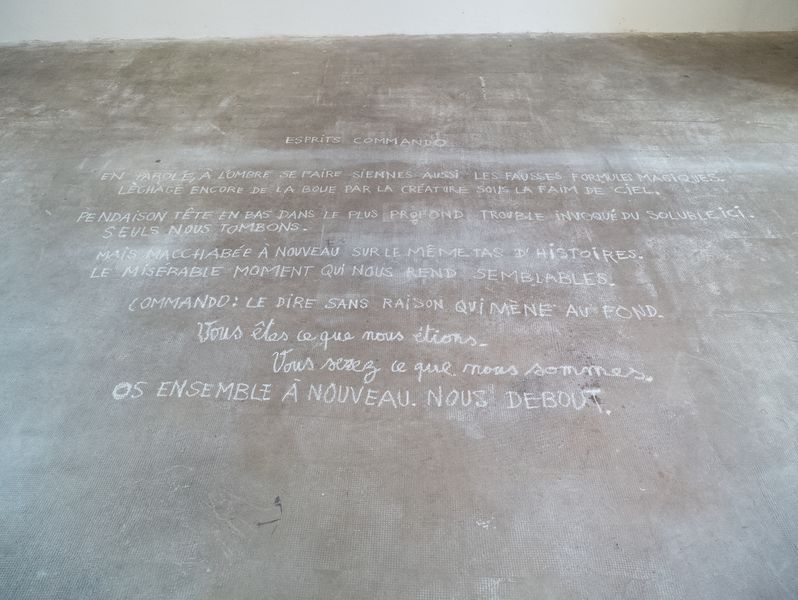 ESPRITS COMMANDO
EN PAROLE, À L'OMBRE SE FAIRE SIENNES AUSSI LES FAUSSES FORMULES MAGIQUES.
LÉCHAGE ENCORE DE LA BOUE PAR LA CRÉATURE SOUS LA FAIM DE CIEL.
PENDAISON TÊTE EN BAS DANS LE PLUS PROFOND TROUBLE INVOQUÉ DU SOLUBLE ICI.
SEULS NOUS TOMBONS.
MAIS MACCHABÉE À NOUVEAU SUR LE MÊME TAS D'HISTOIRES.
LE MISÉRABLE MOMENT QUI NOUS REND SEMBLABLES.
COMMANDO: LE DIRE SANS RAISON QUI MÈNE AU FOND.
Vous êtes ce que nous étions.
Vous serez ce que nous sommes.
OS ENSEMBLE À NOUVEAU. NOUS DEBOUT.